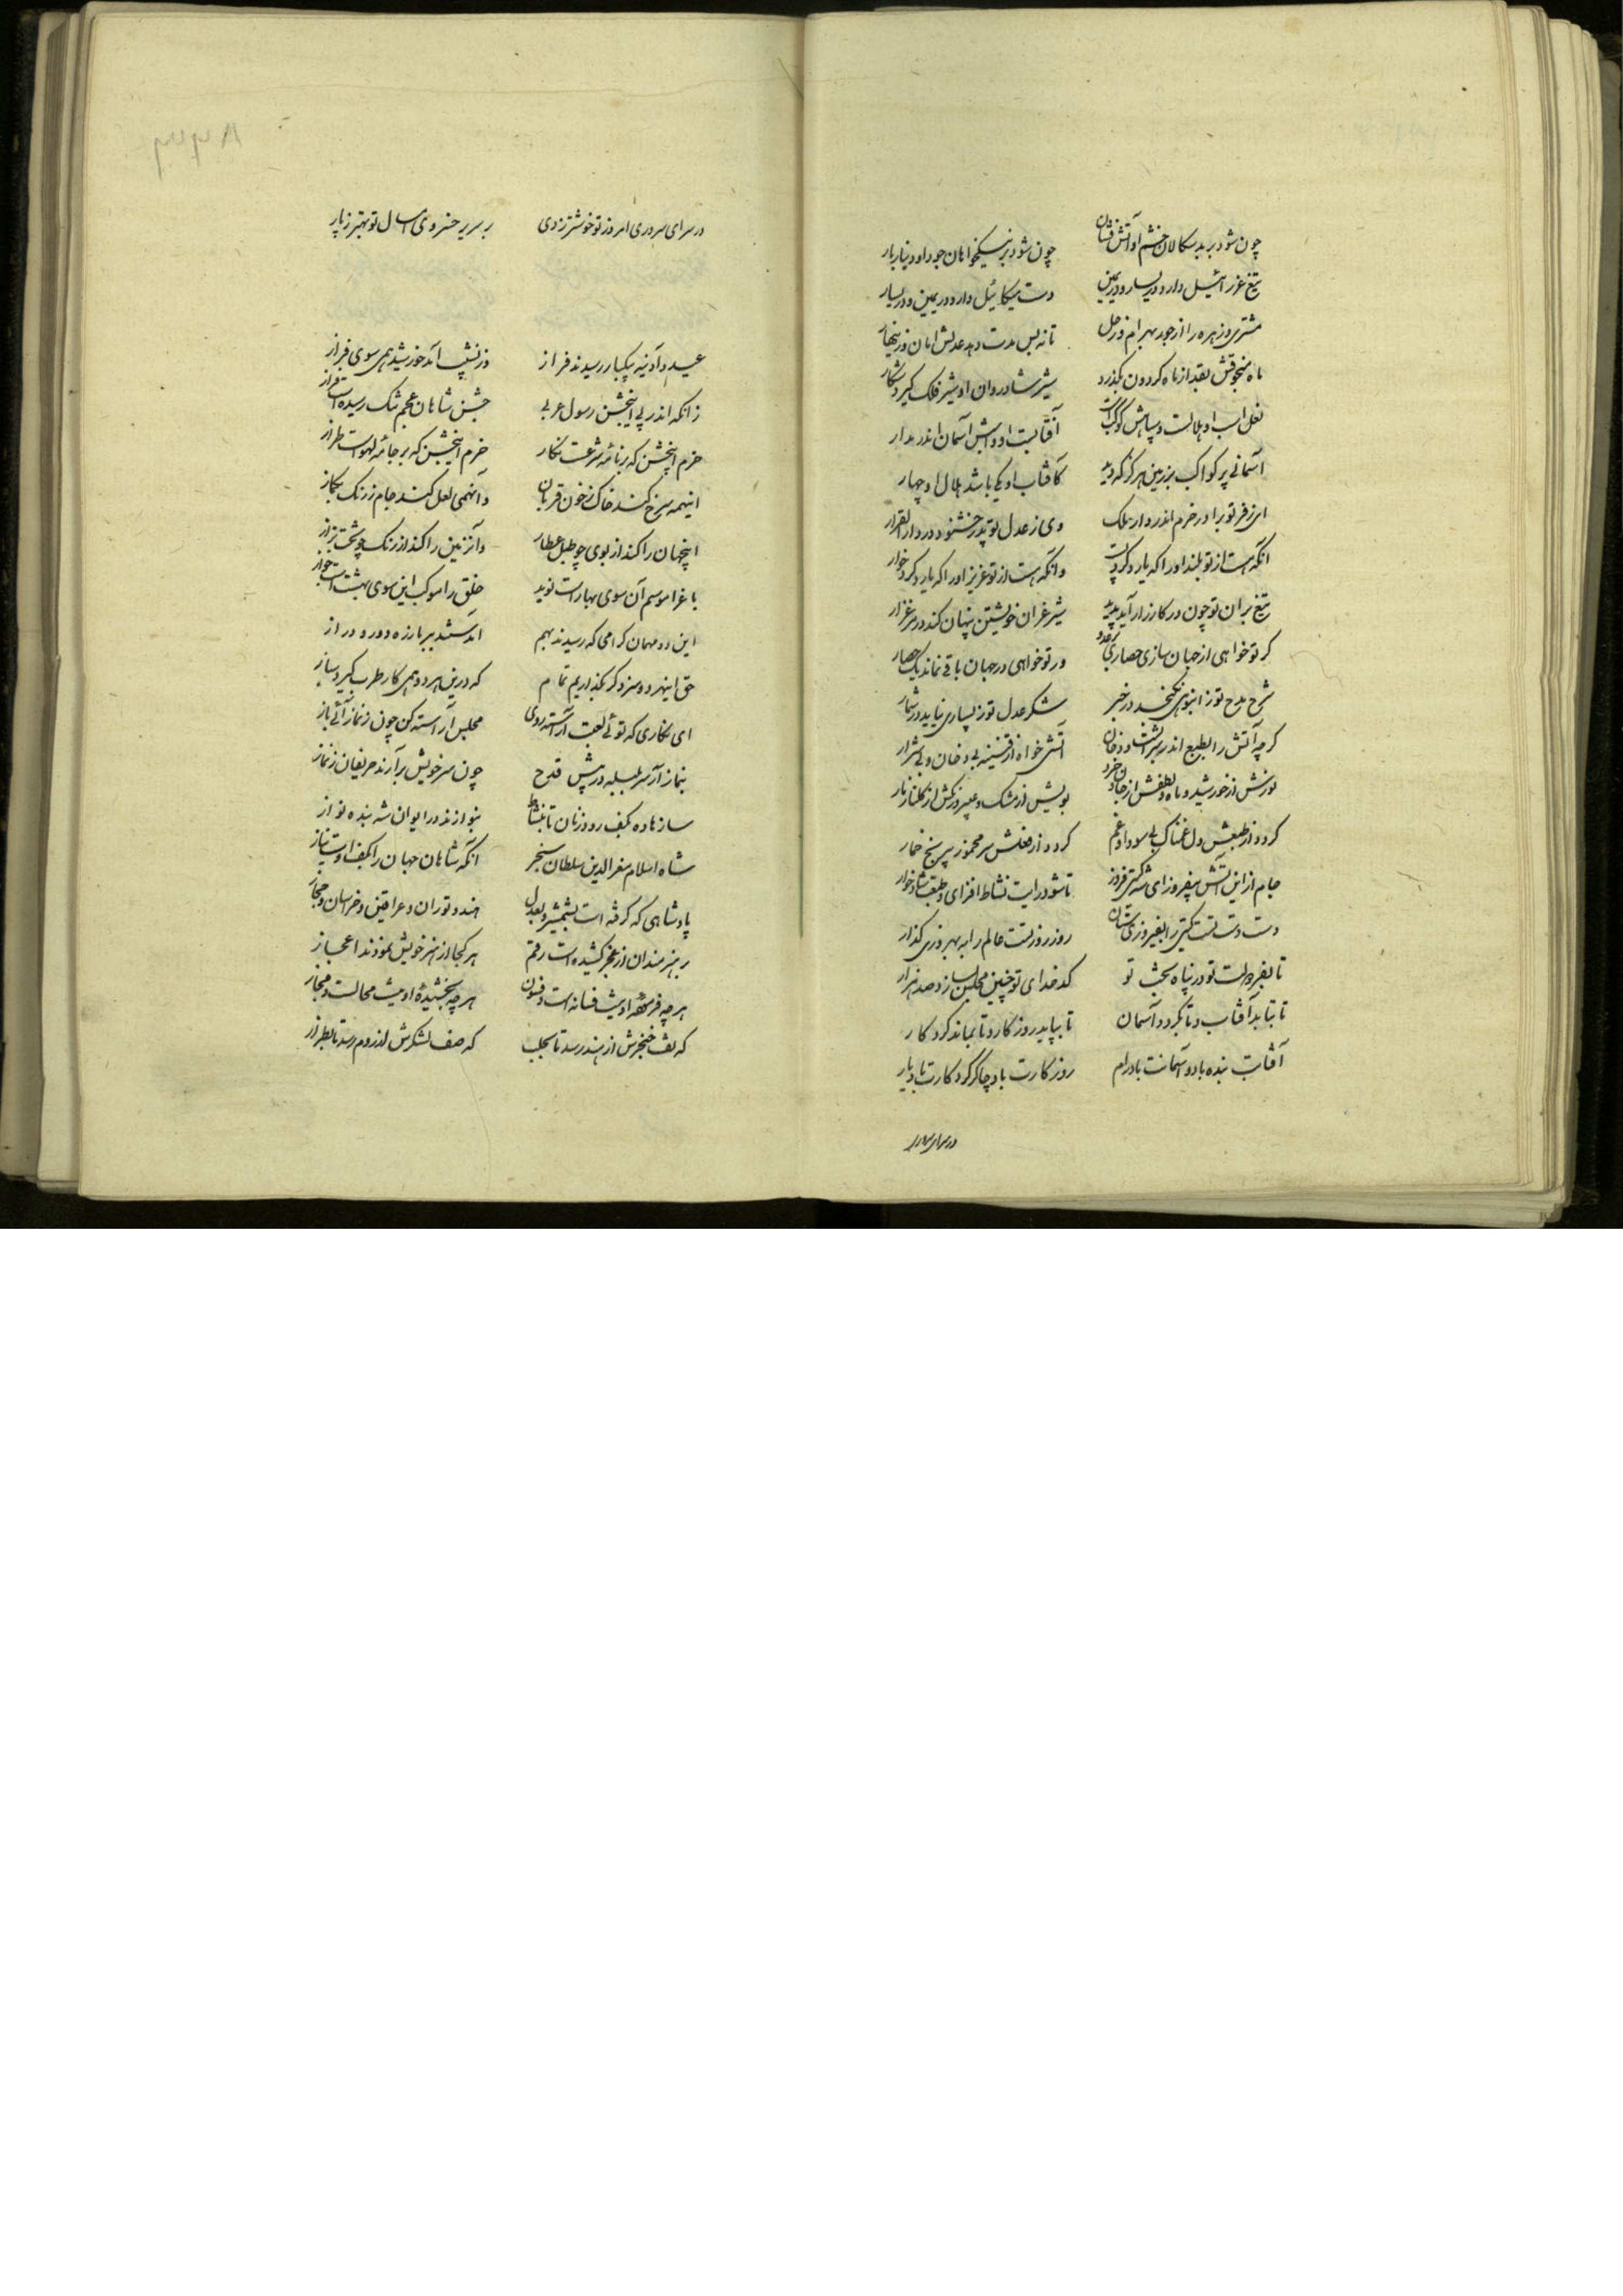 چون شود بر بدسکالان خشم او آتش فشان چون شود بر نیکخواهان جود او دینار بار
تیغ عزرائیل دارد در یسار و در یمین دست میکائیل دارد در یمین و در یسار
مشتری و زهره را از جور بهرام و زحل تا نه بس مدت دهد عدلش امان و زینهار
ماه منجوقش بقدر از ماه کردون بگذرد شیر شادروان او شیر فلک گیرد شکار
نعل اسب او هلالست و سپاهش کوکب است آفتابست او و اسبش آسمان اندر مدار
آسمانی پر کواکب بر زمین هرگز که دید کافتاب او یکی باشد هلال او چهار
ای ز فر تو برادر خرم اندر دار ملک وی ز عدل تو پدر خشنود در دار القرار
آنکه هست از تو بلند او را که یارد کرد پست وانکه هست از تو عزیز او را که یارد کرد خوار
تیغ بران تو چون در کارزار آید پدید شیر غران خویشتن پنهان کند در مرغزار
کر تو خواهی از جهان سازی حصاری بر عدو ور تو خواهی در جهان باقی نماند یک حصار
شرح مدح تو ز انبوهی نگنجد در خبر شکر عدل تو ز بسیاری نیاید در شمار
کرچه آتش را بطبع اندر سرشتست و دخان آتشی خواه از قنینه بی دخان و بی شرار
نورش از خورشید و ماه و لطفش از جان و خرد بویش از مشک و عبیر و رنکش از کلنار و نار
کردد از طبعش دل غمناک بی سودا و غم کردد از فعلش سر مخمور بی رنج خمار
جام از این آتش بیفروز ای شه کیتی فروز تا شود رایت نشاط افزای و طبعت شادخوار
دست دست تست کیتی را بفیروزی ستان روز روز تست عالم را به بهروزی کذار
تا بفر دولت تو در پناه بخت تو کدخدای تو چنین مجلس بسازد صد هزار
تا بتابد آفتاب و تا بکردد آسمان تا بپاید روزکار و تا بماند کردکار
آفتابت بنده باد و آسمانت باد رام روزکارت باد چاکر کردکارت باد یار
در سرای سروری
در سرای سروری امروز تو خوشتر ز دی بر سریر خسروی امسال تو بهتر ز پار
عید و آدینه بیکبار رسیدند فراز وز نشیب آمد خورشید همی سوی فراز
زانکه اندر پی این جشن رسول عربی جشن شاهان عجم تنک رسیده است فراز
خرم این جشن که بر نامه شرعست نکار خرم این جشن که بر جامه لهو است طراز
این همه سرخ کند خاک ز خون قربان وان همی لعل کند جام ز رنک بکماز
این جهان را کند از بوی چو طبل عطار وآن زمین را کند از رنک چو تخت بزاز
باغ را موسم آن سوی بهار است نوید خلق را موکب این سوی بهشت است جواز
این دو مهمان کرامی که رسیدند بهم آمدستند بر ما ز ره دور و دراز
حق این هر دو سزد کر بگذاریم تمام که درین هر دو همی کار طرب گیرد ساز
ای نکاری که توئی لعبت آراسته روی مجلس آراسته کن چون ز نماز آئی باز
بنماز آر سر بلبله در پیش قدح چون سر خویش برآرند حریفان ز نماز
ساز ها ده بکف رود زنان تا بنشاط بنوازند در ایوان شه بنده نواز
شاه اسلام معز الدین سلطان سنجر آنکه شاهان جهان را بکف اوست نیاز
پادشاهی که گرفته است بشمشیر و بعدل هند و توران و عراقین و خراسان و حجاز
بر هنرمندان از عجز کشیده است رقم هر کجا از هنر خویش نمودند اعجاز
هر چه فرموده او نیست فسانه است و فسون هر چه بخشیده او نیست محالست و مجاز
که تف خنجرش از هند رسد تا بحلب که صف لشکرش از روم رسد تا بطراز